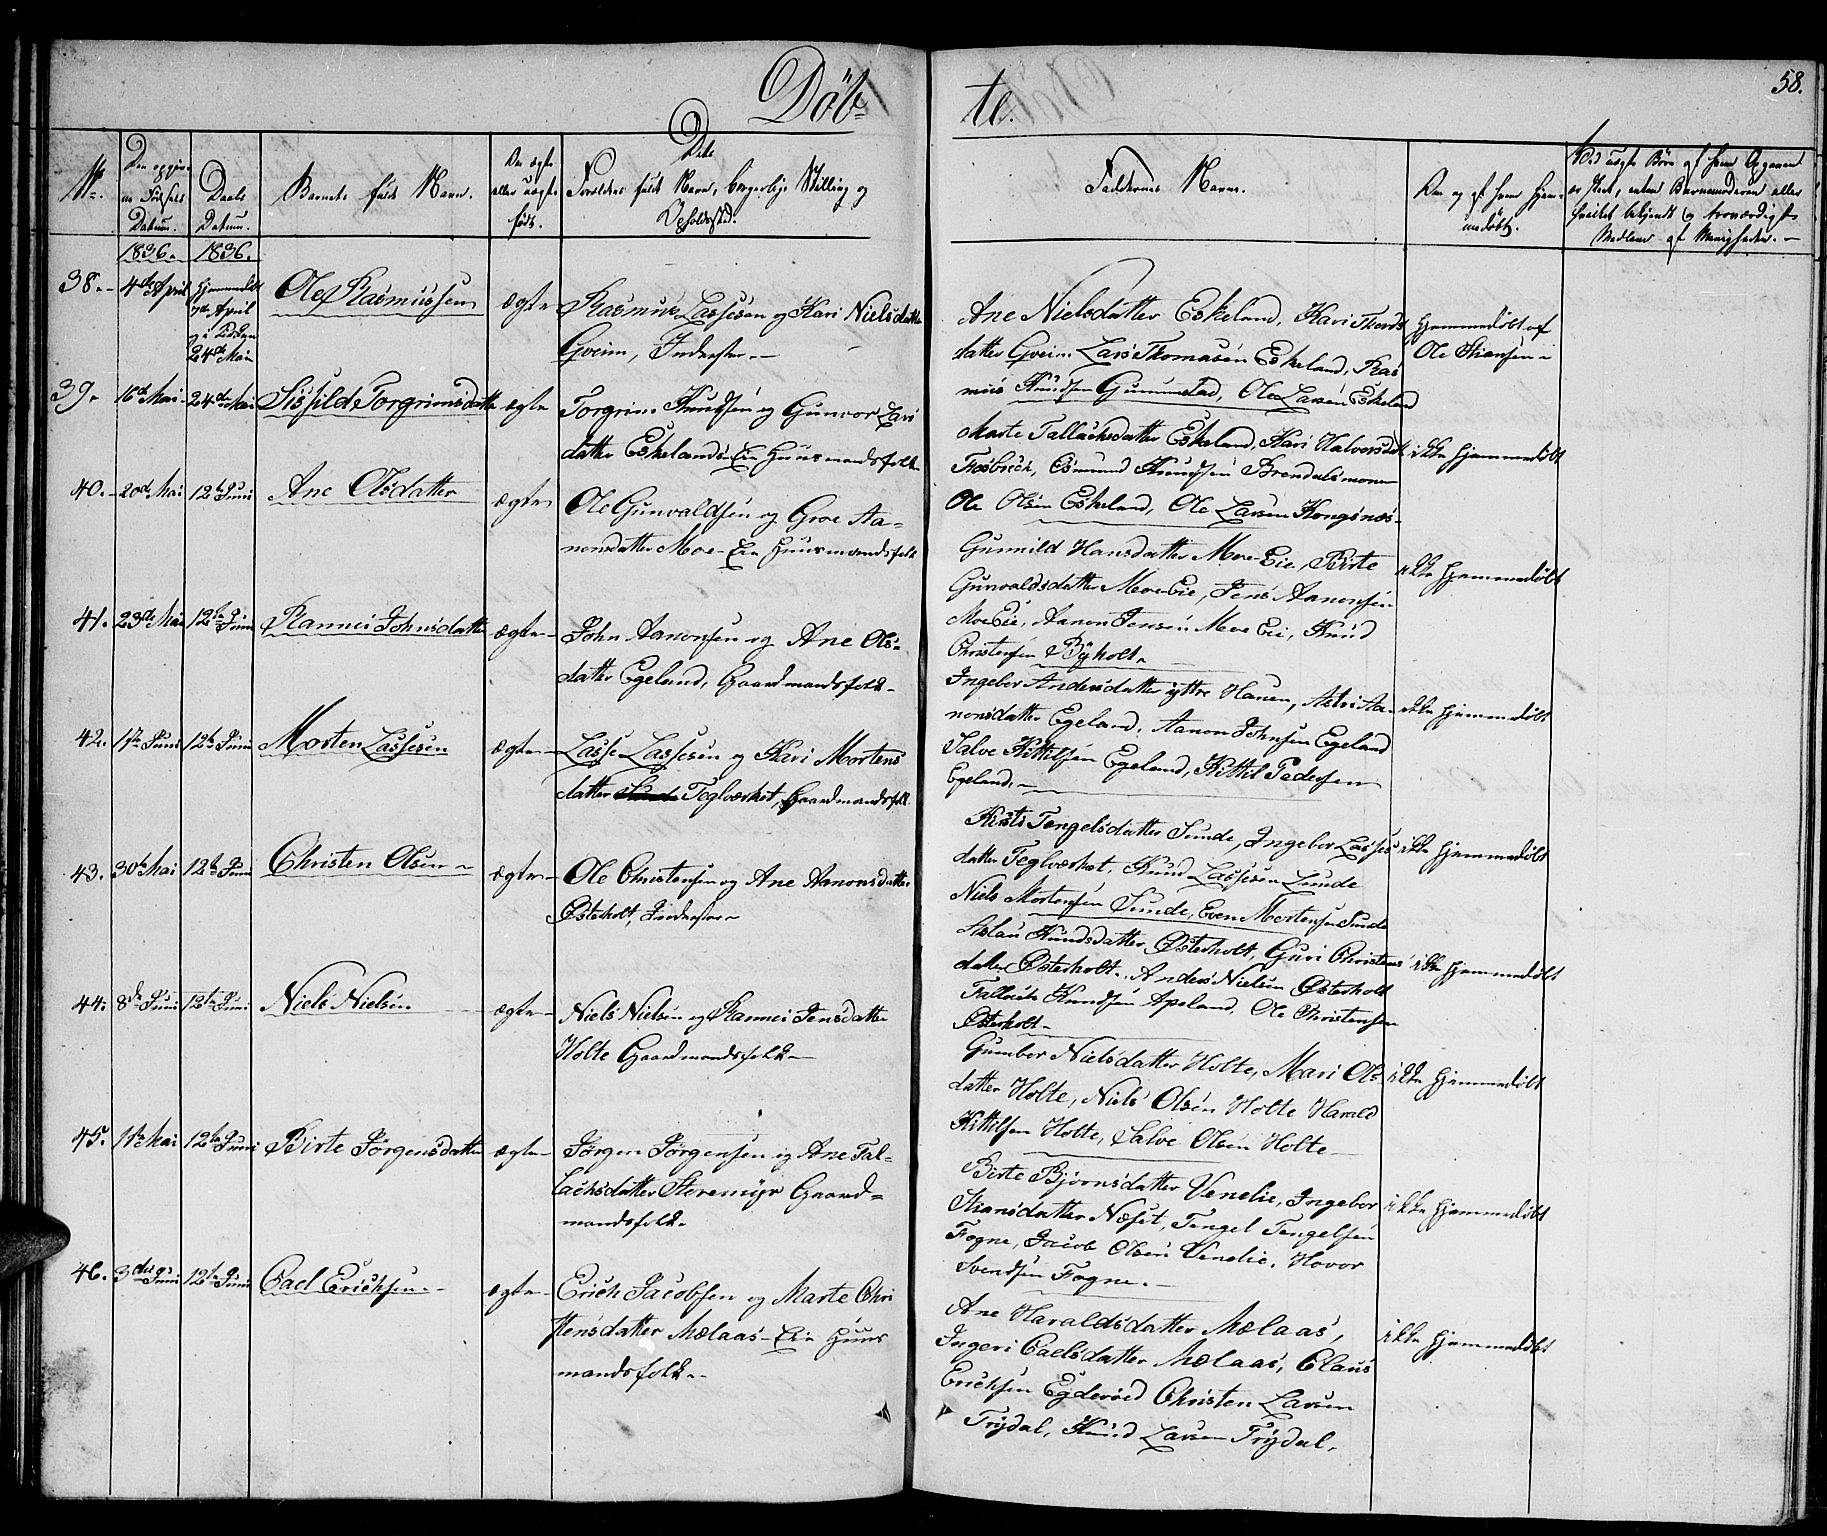 Døb-
te.
58.
No.
Den opgiv-
ne Fødsels
Datum.
Daabs
Datum.
Barnets fulde Navn.
Om ægte
eller uægte
født.
Dets
Forældres fulde Navn, borgerlige Stilling og
Opholdssted.
Faddernes Navne.
Om og af hvem hjem-
medøbt.
Ved uægte Børn af hvem Opgaven
er skeet, enten Barnemoderen eller
hvilket bekjendt og troværdigt
Medlem af Menigheden.-
1836.- 1836.
38.- 4de April
Hjemmedøbt
7de April
og i Kirken
24de Mai
Ole Rasmussen
ægte
Rasmus Lassesen og Kari Nielsdatter
Gveim, Inderster.-
Ane Nielsdatter Eskeland, Kari Thords
datter Gveim. Lars Thomasen Eskeland, Ras
mus Knudsen Gunnestad, Ole Larsen Eskeland
Hjemmedøbt af
Ole Stiansen-
39.- 16de Mai- 24de Mai Sissild Torgrimsdatter ægte
Torgrim Knudsen og Gunvor Lars
datter Eskelands-Eie Huusmandsfolk
Marte Tallaksdatter Eskeland, Kari Halvorsdatt
Fosbæck, Osmund Knudsen Brendalsmoen
Ole Olsen Eskeland, Ole Larsen Kongsnæs-
ikke hjemmedøbt
40.- 20de Mai 12te Juni Ane Olsdatter ægte
Ole Gunvaldsen og Groe Aa-
nonsdatter Moe-Eie Huusmandsfolk
Gunnild Hansdatter Moe-Eie, Birte
Gunvaldsdatter Moe-Eie, Jens Aanonsen
Moe Eie, Aanon Jensen Moe Eie, Knud
Christensen Byholt-
ikke hjemmedøbt
41. 23de Mai 12te Juni Rannei Johnsdatter ægte-
John Aanonsen og Ane Ols-
datter Egeland, Gaardmandsfolk-
Ingebor Andersdatter yttre Hauen, Astri Aa-
nonsdatter Egeland, Aanon Johnsen Egeland
Salve Kittilsen Egeland, Kittil Pedersen
Egeland.-
ikke hjemmedøbt
42. 1te Juni 12te Juni Morten Lassesen ægte-
Lasse Lassesen og Kari Mortens
datter Teglværket, Gaardmandsfolk
Kirsti Tengelsdatter Sunde, Ingebor Lasses
datter Teglværket, Knud Lassesen Lunde
Niels Mortensen Sunde, Even Mortensen Sunde
ikke hjemmedøbt
43. 30te Mai 12te Juni Christen Olsen- ægte-
Ole Christensen og Ane Aanonsdatter
Østerholt, Inderster-
Aslau Knudsdatter Østerholt, Guri Christens
datter Østerholt, Anders Nielsen Østerholt
Tallak Knudsen Apeland, Ole Christensen
Østerholt-
ikke hjemmedøbt
44. 8de Juni 12te Juni Niels Nielsen ægte-
Niels Nielsen og Rannei Jensdatter
Holte Gaardmandsfolk-
Gumbor Nielsdatter Holte, Mari Ols
datter Holte, Niels Olsen Holte Harald
Kittilsen Holte, Salve Olsen Holte-
ikke hjemmedøbt
45. 11te Mai 12te Juni Birte Jørgensdatter ægte-
Jørgen Jørgensen og Ane Tal-
lachsdatter Storemyr Gaard-
mandsfolk-
Birte Bjørnsdatter Venelie, Ingebor
Stiansdatter Næset, Tengel Tengelsen
Fogne, Jacob Olsen Venelie, Hovor
Svendsen Fogne.-
ikke hjemmedøbt
46. 3die Juni 12te Juni Carl Erichsen.- ægte-
Erich Jacobsen og Marte Chri
stensdatter Mælaas-Eie Huus
mandsfolk.-
Ane Haraldsdatter Mælaas,
Ingeri Carlsdatter Mælaas, Claus
Erichsen Egderød Christen Larsen
Trydal, Knud Larsen Trydal,
ikke hjemmedøbt